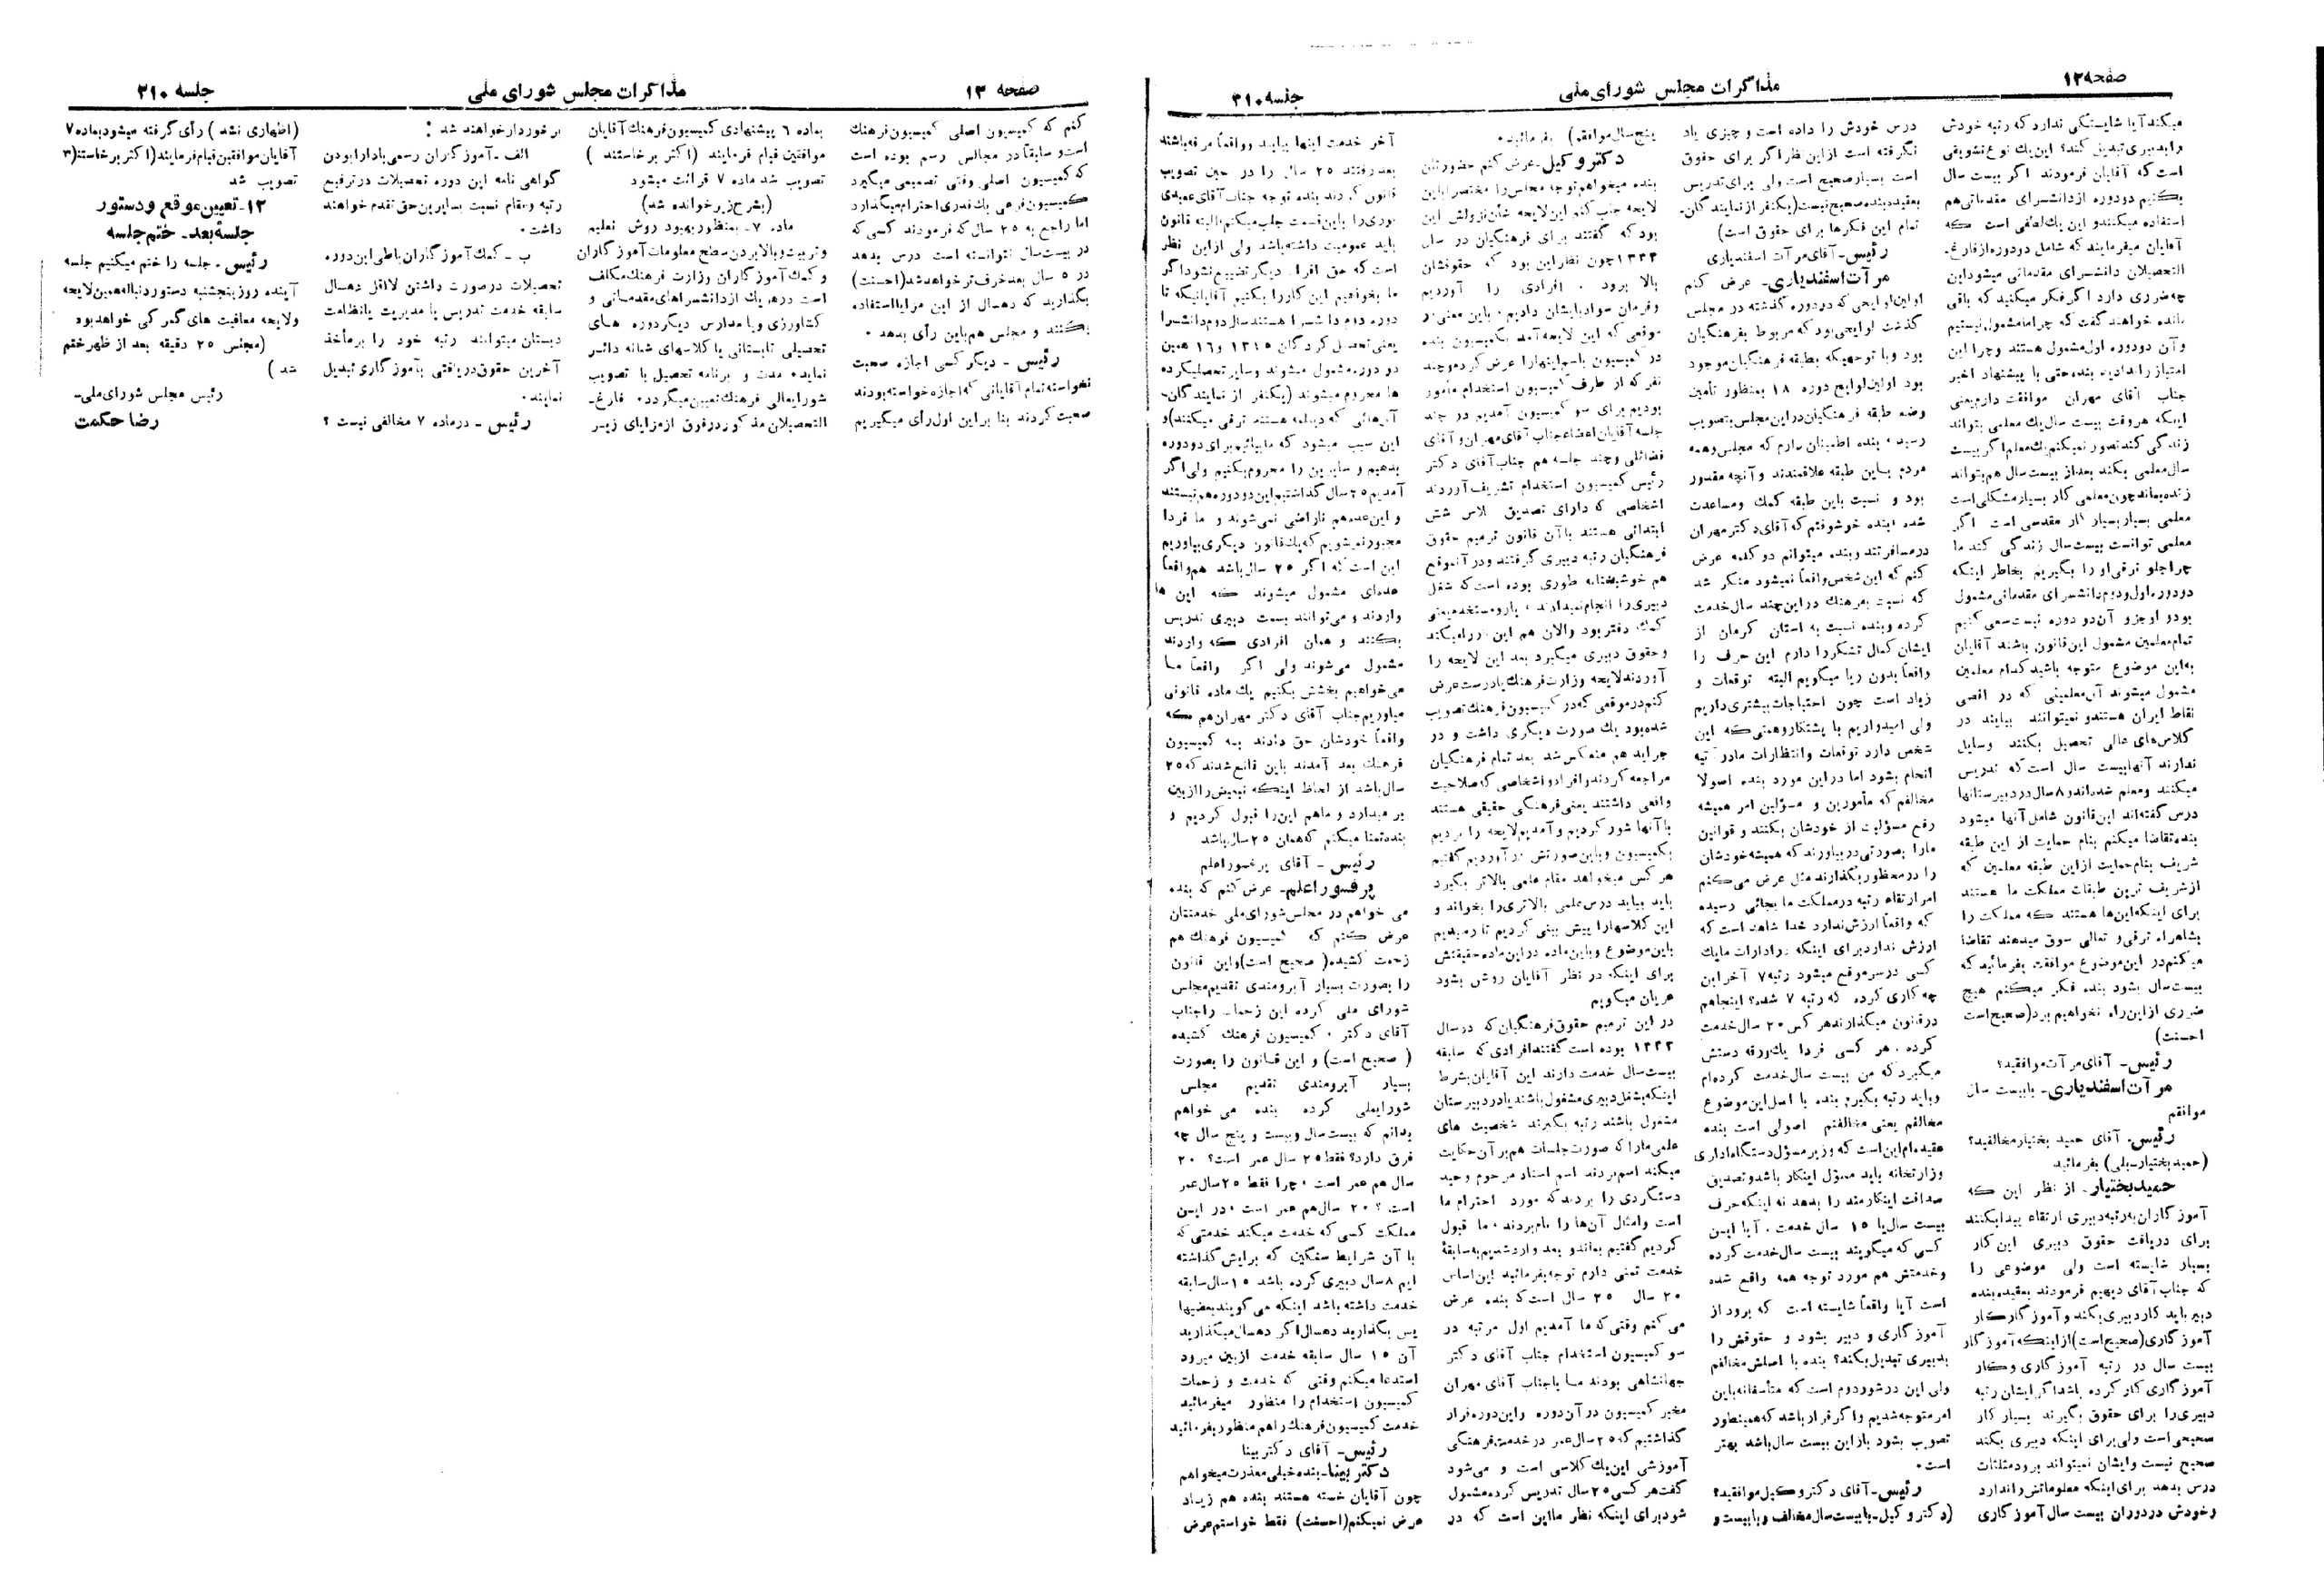 صفحه ۱۲
مذاکرات مجلس شورای ملی
جلسه ۲۱۰
میکند آیا شایستگی ندارد که رتبه خودش
را بدبیری تبدیل کند؟ این یك نوع تشویقی
است که آقایان فرمودند اگر بیست سال
بکنیم دو دوره از دانشسرای مقدماتی هم
استفاده میکنند و این یك لطفی است که
آقایان میفرمایند که شامل دو دوره از فارغ‌ـ
التحصیلان دانشسرای مقدماتی میشود این
چه ضرری دارد اگر فکر میکنید که باقی
مانده خواهند گفت که چرا ما مشمول نیستیم
و آن دو دوره اول مشمول هستند و چرا این
امتیاز را نداریم بنده حتی با پیشنهاد اخیر
جناب آقای مهران موافقت دارم یعنی
اینکه هر وقت بیست سال یك معلمی بتواند
زندگی کند تصور نمیکنم یك معلم اگر بیست
سال معلمی بکند بعد از بیست سال هم بتواند
زنده بماند چون معلمی کار بسیار مشکلی است
معلمی بسیار بسیار کار مقدسی است اگر
معلمی توانست بیست سال زندگی کند ما
چرا جلو ترقی او را بگیریم بخاطر اینکه
دو دوره اول و دوم دانشسرای مقدماتی مشمول
بود و او جزو آن دو دوره نیست سعی کنیم
تمام معلمین مشمول این قانون باشند آقایان
به این موضوع متوجه باشید کدام معلمین
مشمول میشوند آن معلمینی که در اقصی
نقاط ایران هستند و نمیتوانند بیایند در
کلاس‌های عالی تحصیل بکنند وسایل
ندارند آنها بیست سال است که تدریس
میکنند و معلم شده‌اند و ۸ سال در دبیرستانها
درس گفته‌اند این قانون شامل آنها میشود
بنده تقاضا میکنم بنام حمایت از این طبقه
شریف بنام حمایت از این طبقه معلمین که
از شریف ترین طبقات مملکت ما هستند
برای اینکه این‌ها هستند که مملکت را
بشاهراه ترقی و تعالی سوق میدهند تقاضا
میکنم در این موضوع موافقت بفرمائید که
بیست سال بشود بنده فکر میکنم هیچ
ضرری از این راه نخواهیم برد (صحیح است
احسنت)
رئیس ـ آقای مرآت موافقید؟
مرآت اسفندیاری ـ با بیست سال
موافقم
رئیس ـ آقای حمید بختیار مخالفید؟
(حمید بختیار ـ بلی) بفرمائید
حمید بختیار ـ از نظر این که
آموزگاران به رتبه دبیری ارتقاء پیدا بکنند
برای دریافت حقوق دبیری این کار
بسیار شایسته است ولی موضوعی را
که جناب آقای دیهیم فرمودند بعقیده بنده
دبیر باید کار دبیری بکند و آموزگار کار
آموزگاری (صحیح است) از اینکه آموزگار
بیست سال در رتبه آموزگاری و کار
آموزگاری کار کرده باشد اگر ایشان رتبه
دبیری را برای حقوق بگیرند بسیار کار
صحیحی است ولی برای اینکه دبیری بکند
صحیح نیست و ایشان نمیتواند برود مثلثات
درس بدهد برای اینکه معلوماتش را ندارد
و خودش در دوران بیست سال آموزگاری
درس خودش را داده است و چیزی یاد
نگرفته است از این نظر اگر برای حقوق
است بسیار صحیح است ولی برای تدریس
بعقیده بنده صحیح نیست (یکنفر از نمایندگان ـ
تمام این فکرها برای حقوق است)
رئیس ـ آقای مرآت اسفندیاری
مرآت اسفندیاری ـ عرض کنم
اولین لوایحی که در دوره گذشته در مجلس
گذشت لوایحی بود که مربوط بفرهنگیان
بود و با توجهیکه بطبقه فرهنگیان موجود
بود اولین لوایح دوره ۱۸ بمنظور تأمین
وضع طبقه فرهنگیان در این مجلس بتصویب
رسید، بنده اطمینان دارم که مجلس و همه
مردم باین طبقه علاقمندند و آنچه مقدور
بود و نسبت باین طبقه کمك و مساعدت
شده، بنده خوشوقتم که آقای دکتر مهران
در مسافرتند و بنده میتوانم دو کلمه عرض
کنم که این شخص واقعاً نمیشود منکر شد
که نسبت بفرهنك در این چند سال خدمت
کرده و بنده نسبت به استان کرمان از
ایشان کمال تشکر را دارم این حرف را
واقعاً بدون ریا میگویم البته توقعات و
زیاد است چون احتیاجات بیشتری داریم
ولی امیدواریم با پشتکار و همتی که این
شخص دارد توقعات و انتظارات ما در آتیه
انجام بشود اما در این مورد بنده اصولا
مخالفم که مأمورین و مسؤلین امر همیشه
رفع مسؤلیت از خودشان بکنند و قوانین
ما را بصورتی در بیاورند که همیشه خودشان
را در محظور بگذارند مثل عرض می‌کنم
امر ارتقاء رتبه در مملکت ما بجائی رسیده
که واقعاً ارزش ندارد خدا شاهد است که
ارزش ندارد برای اینکه در ادارات ما یك
کسی در سر موقع میشود رتبه ۷ آخر این
چه کاری کرده که رتبه ۷ شده؟ اینجا هم
در قانون میگذارند هر کس ۲۰ سال خدمت
کرده، هر کسی فردا یك ورقه دستش
میگیرد که من بیست سال خدمت کرده‌ام
و باید رتبه بگیرم بنده با اصل این موضوع
مخالفم یعنی مخالفتم اصولی است بنده
عقیده‌ام این است که وزیر مسؤل دستگاه اداری
وزارتخانه باید مسؤل اینکار باشد و تصدیق
صداقت اینکارمند را بدهد نه اینکه حرف
بیست سال یا ۱۵ سال خدمت. آیا این
کسی که میگویند بیست سال خدمت کرده
و خدمتش هم مورد توجه همه واقع شده
است آیا واقعاً شایسته است که برود از
آموزگاری و دبیر بشود و حقوقش را
بدبیری تبدیل بکند؟ بنده با اصلش مخالفم
ولی این در شور دوم است که متأسفانه باین
امر متوجه شدیم و اگر قرار باشد که همینطور
تصویب بشود باز این بیست سال باشد بهتر
است.
رئیس ـ آقای دکتر وکیل موافقید؟
(دکتر وکیل ـ با بیست سال مخالف و با بیست و
پنج سال موافقم) بفرمائید.
دکتر وکیل ـ عرض کنم حضورتان
بنده میخواهم توجه مجلس را مختصراً باین
لایحه جلب کنم این لایحه شأن نزولش این
بود که گفتند برای فرهنگیان در سال
۱۳۳۴ چون نظر این بود که حقوقشان
بالا برود، افرادی را آوردیم
و فرمان سواد بایشان دادیم، باین معنی در
موقعی که این لایحه آمد بکمیسیون بنده
در کمیسیون با سم اینها را عرض کرده و چند
نفر که از طرف کمیسیون استخدام مأمور
بودیم برای سو کمیسیون آمدیم در چند
جلسه آقایان اعضاء جناب آقای مهران و آقای
فضائلی و چند جلسه هم جناب آقای دکتر
رئیس کمیسیون استخدام تشریف آوردند
اشخاصی که دارای تصدیق کلاس شش
ابتدائی هستند با آن قانون ترمیم حقوق
فرهنگیان رتبه دبیری گرفتند و در آنموقع
هم خوشبختانه طوری بوده است که شغل
دبیری را انجام نمیدادند،
کمك دفتر بود و الان هم این
و حقوق دبیری میگیرد بعد این لایحه را
آوردند لایحه وزارت فرهنك یا درست عرض
کنم در موقعی که در کمیسیون فرهنك تصویب
شده بود یك صورت دیگری داشت و در
جراید هم منعکس شد بعد تمام فرهنگیان
مراجعه کردند و افراد و اشخاصی که صلاحیت
واقعی داشتند یعنی فرهنگی حقیقی هستند
با آنها شور کردیم و آمدیم لایحه را بردیم
بکمیسیون و باین صورتش در آوردیم گفتیم
هر کس میخواهد مقام علمی بالاتر بگیرد
باید بیاید درس علمی بالاتری را بخواند و
این کلاسها را پیش بینی کردیم تا رسیدیم
باین موضوع و باین ماده در این ماده حقیقتش
برای اینکه در نظر آقایان روشن بشود
عریان میگویم
در این ترمیم حقوق فرهنگیان که در سال
۱۳۳۴ بوده است گفتند افرادی که سابقه
بیست سال خدمت دارند این آقایان بشرط
اینکه بشغل دبیری مشغول باشند یا در دبیرستان
مشغول باشند رتبه بگیرند شخصیت های
علمی ما را که صورت جلسات هم بر آن حکایت
میکند اسم بردند اسم استاد مرحوم وحید
دستگردی را بردند که مورد احترام ما
است و امثال آن‌ها را نام بردند، ما قبول
کردیم گفتیم بماند و بعد وارد شدیم به سابقهٔ
خدمت تمنی دارم توجه بفرمائید این اساس
۲۰ سال ۲۵ سال است که بنده عرض
می کنم وقتی که ما آمدیم اول مرتبه در
سو کمیسیون استخدام جناب آقای دکتر
جهانشاهی بودند ما با جناب آقای مهران
مخبر کمیسیون در آن دوره و این دوره قرار
گذاشتیم که ۲۵ سال عمر در خدمت فرهنگی
آموزشی این یك کلاسی است و می‌شود
گفت هر کسی ۲۵ سال تدریس کرده مشمول
شود برای اینکه نظر ما این است که در
آخر خدمت اینها بیایند و واقعاً مرفه باشند
بعد رفتند ۲۵ سال را در حین تصویب
قانون کردند بنده توجه جناب آقای عمیدی
نوری را باین قسمت جلب میکنم، البته قانون
باید عمومیت داشته باشد ولی از این نظر
است که حق افراد دیگر تضییع نشود اگر
ما بخواهیم این کار را بکنیم آقایانیکه تا
دوره دوم دانشسرا هستند سال دوم دانشسرا
یعنی تحصیل کردگان ۱۳۱۵ و ۱۶ همین
دو دوره مشمول میشوند و سایر تحصیلکرده
ها محروم میشوند (یکنفر از نمایندگان ـ
آنهائی که دیپلمه هستند ترقی میکنند) و
این سبب میشود که ما بیائیم برای دو دوره
بدهیم و سایرین را محروم بکنیم ولی اگر
آمدیم ۲۵ سال گذاشتیم این دو دوره هم نیستند
و این عده هم ناراضی نمی‌شوند و ما فردا
مجبور نمیشویم که یك قانون دیگری بیاوریم
این است که اگر ۲۵ سال باشد هم واقعاً
عده‌ای مشمول میشوند که این ها
واردند و می‌توانند بسمت دبیری تدریس
بکنند و همان افرادی که واردند
مشمول می‌شوند ولی اگر واقعاً ما
می‌خواهیم بخشش بکنیم یك ماده قانونی
میاوریم جناب آقای دکتر مهران هم که
واقعاً خودشان حق دادند به کمیسیون
فرهنك بعد آمدند باین قانع شدند که ۲۵
سال باشد از لحاظ اینکه تبعیض را از بین
بر میدارد و ما هم این را قبول کردیم و
بنده تمنا میکنم که همان ۲۵ سال باشد
رئیس ـ آقای پرفسور اعلم
پرفسور اعلم ـ عرض کنم که بنده
می خواهم در مجلس شورای ملی خدمتتان
عرض کنم که کمیسیون فرهنك هم
زحمت کشیده (صحیح است) و این قانون
را بصورت بسیار آبرومندی تقدیم مجلس
شورای ملی کرده این زحمات را جناب
آقای دکتر، کمیسیون فرهنك کشیده
(صحیح است) و این قانون را بصورت
بسیار آبرومندی تقدیم مجلس
شورایملی کرده بنده می خواهم
بدانم که بیست سال و بیست و پنج سال چه
فرق دارد؟ فقط ۲۵ سال عمر است؟ ۲۰
سال هم عمر است، چرا فقط ۲۵ سال عمر
است؟ ۲۰ سال هم عمر است، در این
مملکت کسی که خدمت میکند خدمتی که
با آن شرایط سنگین که برایش گذاشته
ایم ۸ سال دبیری کرده باشد ۱۵ سال سابقه
خدمت داشته باشد اینکه می گویند بعضیها
پس بگذارید ده سال اگر ده سال میگذارید
آن ۱۵ سال سابقه خدمت از بین میرود
استدعا میکنم وقتی که خدمت و زحمات
کمیسیون استخدام را منظور میفرمائید
خدمت کمیسیون فرهنك را هم منظور بفرمائید
رئیس ـ آقای دکتر بینا
دکتر بینا ـ بنده خیلی معذرت میخواهم
چون آقایان خسته هستند بنده هم زیاد
عرض نمیکنم (احسنت) فقط خواستم عرض
صفحه ۱۳
مذاکرات مجلس شورای ملی
جلسه ۲۱۰
کنم که کمیسیون اصلی کمیسیون فرهنك
است و سابقاً در مجالس رسم بوده است
که کمیسیون اصلی وقتی تصمیمی میگیرد
کمیسیون فرعی یك قدری احترام میگذارد
اما راجع به ۲۵ سال که فرمودند کسی که
در بیست سال نتوانسته است درس بدهد
در ۵ سال بعد خرف تر خواهد شد (احسنت)
بگذارید که ده سال از این مزایا استفاده
بکنند و مجلس هم باین رأی بدهد.
رئیس ـ دیگر کسی اجازه صحبت
نخواسته تمام آقایانی که اجازه خواسته بودند
صحبت کردند بنا بر این اول رأی میگیریم
بماده ۶ پیشنهادی کمیسیون فرهنك آقایان
موافقین قیام فرمایند (اکثر برخاستند)
تصویب شد ماده ۷ قرائت میشود
(بشرح زیر خوانده شد)
ماده ۷ ـ بمنظور بهبود روش تعلیم
و تربیت و بالا بردن سطح معلومات آموزگاران
و کمك آموزگاران وزارت فرهنك مکلف
است در هر یك از دانشسراهای مقدماتی و
کشاورزی و یا مدارس دیگر دوره های
تحصیلی تابستانی یا کلاسهای شبانه دائر
نماید، مدت و برنامه تحصیل با تصویب
شورایعالی فرهنك تعیین میگردد، فارغ‌ـ
التحصیلان مذکور در فوق از مزایای زیر
برخوردار خواهند شد:
الف ـ آموزگاران رسمی با دارا بودن
گواهی نامه این دوره تحصیلات در ترفیع
رتبه و مقام نسبت بسایرین حق تقدم خواهند
داشت.
ب ـ کمك آموزگاران با طی این دوره
تحصیلات در صورت داشتن لااقل ده سال
سابقه خدمت تدریس یا مدیریت یا نظامت
دبستان میتوانند رتبه خود را بر مأخذ
آخرین حقوق دریافتی بآموزگاری تبدیل
نمایند.
رئیس ـ در ماده ۷ مخالفی نیست؟
(اظهاری نشد) رأی گرفته میشود بماده ۷
آقایان موافقین قیام فرمایند (اکثر برخاستند)
تصویب شد
۱۲ ـ تعیین موقع و دستور
جلسه بعد ـ ختم جلسه
رئیس ـ جلسه را ختم میکنیم جلسه
آینده روز پنجشنبه دستور دنباله همین لایحه
و لایحه معافیت های گمرکی خواهد بود
(مجلس ۲۵ دقیقه بعد از ظهر ختم
شد)
رئیس مجلس شورای ملی ـ
رضا حکمت